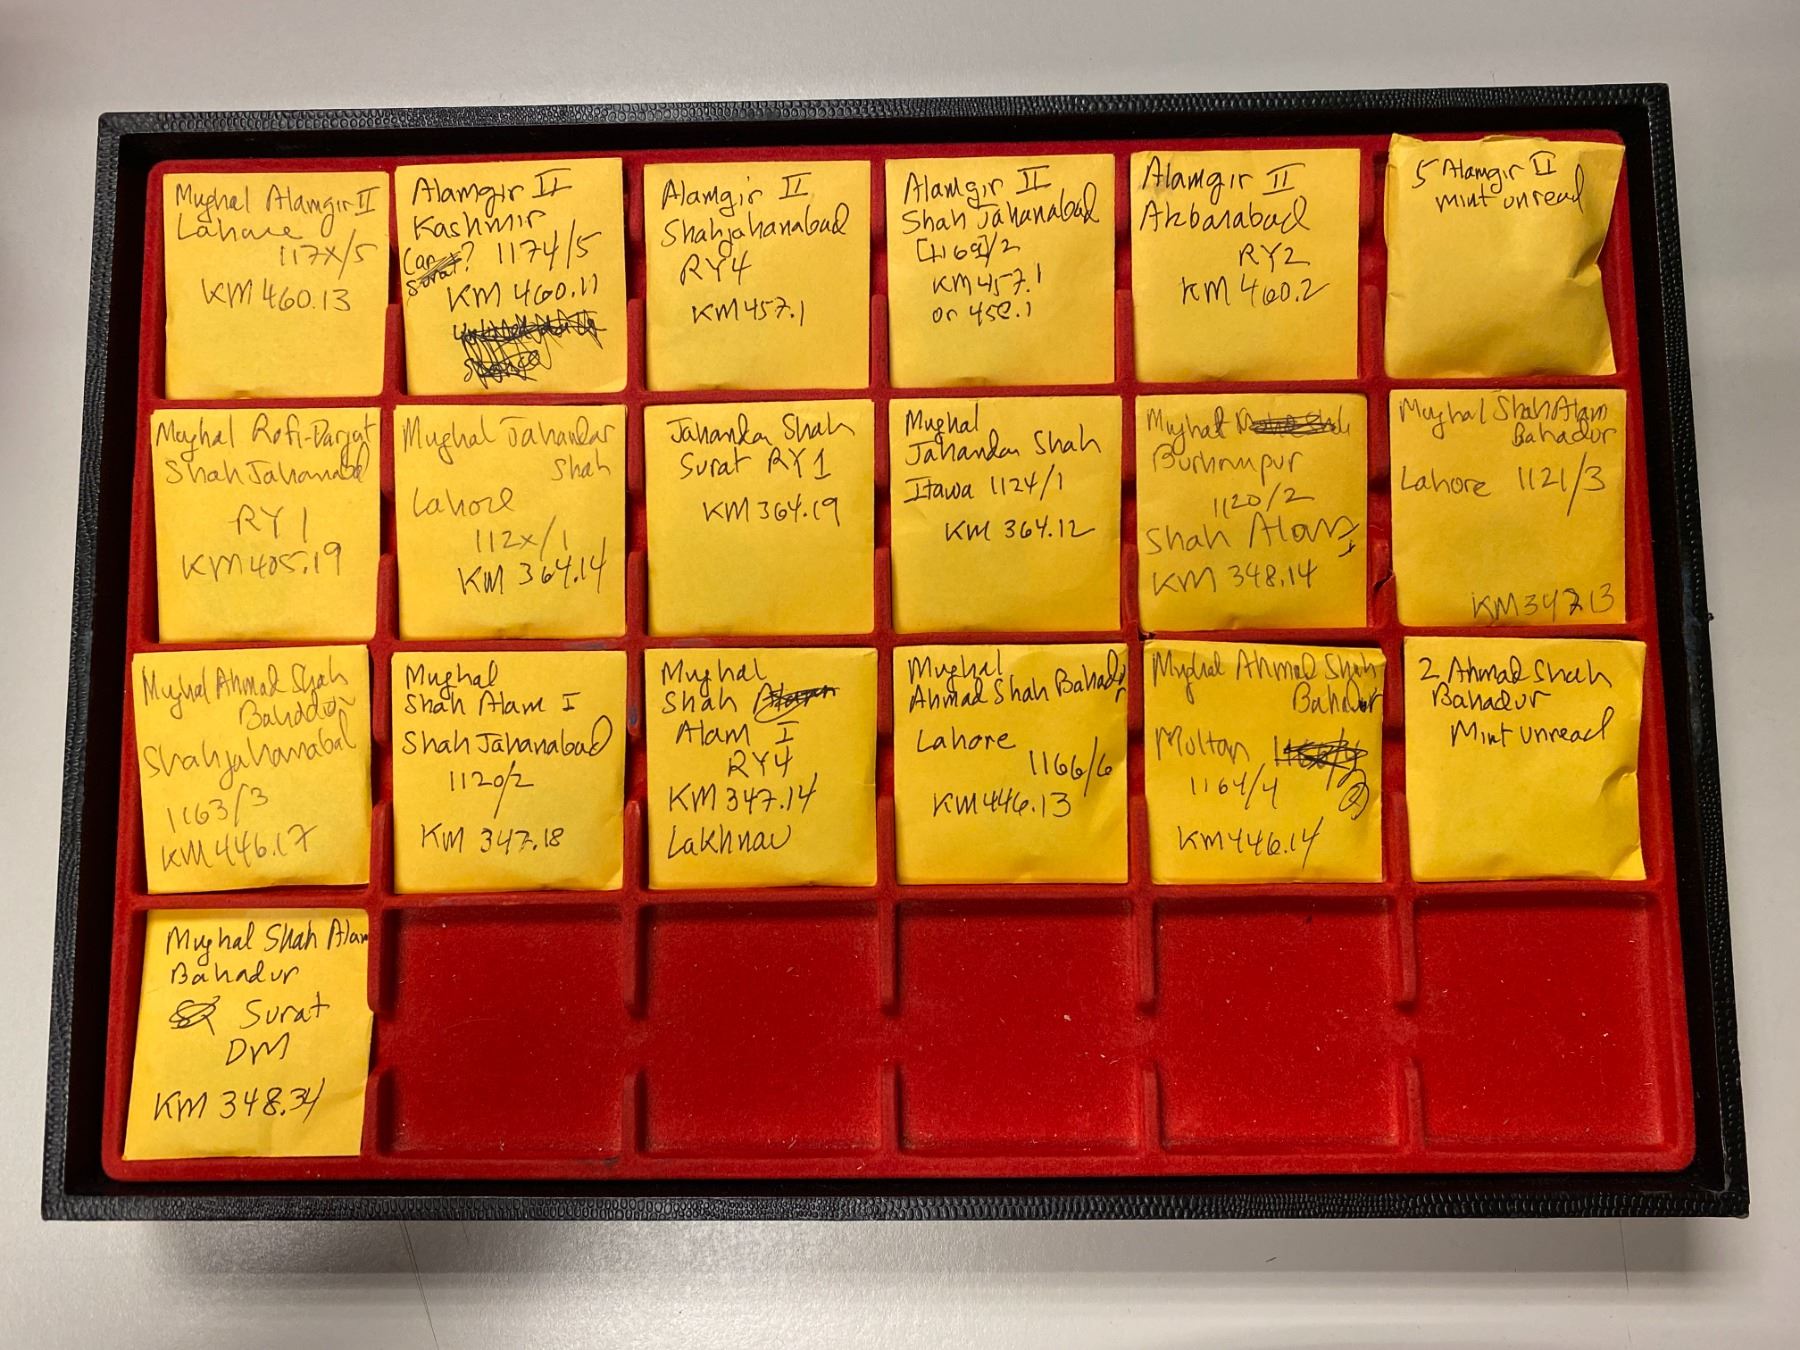 Mughal Alamgir II
Lahore
117x/5
KM 460.13
Alamgir II
Kashmir
? 1174/5
KM 460.11
Alamgir II
Shahjahanabad
RY4
KM 457.1
Alamgir II
Shah Jahanabad
[1169]/2
KM 457.1
or 458.1
Alamgir II
Akbarabad
RY2
KM 460.2
5 Alamgir II
mint unread
Mughal Rafi-Darjat
Shah Jahanabd
RY 1
KM 405.19
Mughal Jahandar
Shah
Lahore
112x/1
KM 364.14
Jahandar Shah
Surat RY1
KM 364.19
Mughal
Jahandar Shah
Itawa 1124/1
KM 364.12
Mughal
Burhanpur
1120/2
Shah Alam I
KM 348.14
Mughal Shah Alam
Bahadur
Lahore 1121/3
KM 347.13
Mughal Ahmad Shah
Bahadur
Shahjahanabad
1163/3
KM 446.17
Mughal
Shah Alam I
Shah Jahanabad
1120/2
KM 347.18
Mughal
Shah
Alam I
RY4
KM 347.14
Lakhnau
Mughal
Ahmad Shah Bahadur
Lahore
1166/6
KM 446.13
Mughal Ahmad Shah
Bahadur
Multan
1164/4
②
KM 446.14
2 Ahmad Shah
Bahadur
Mint unread
Mughal Shah Alam
Bahadur
Surat
DM
KM 348.34